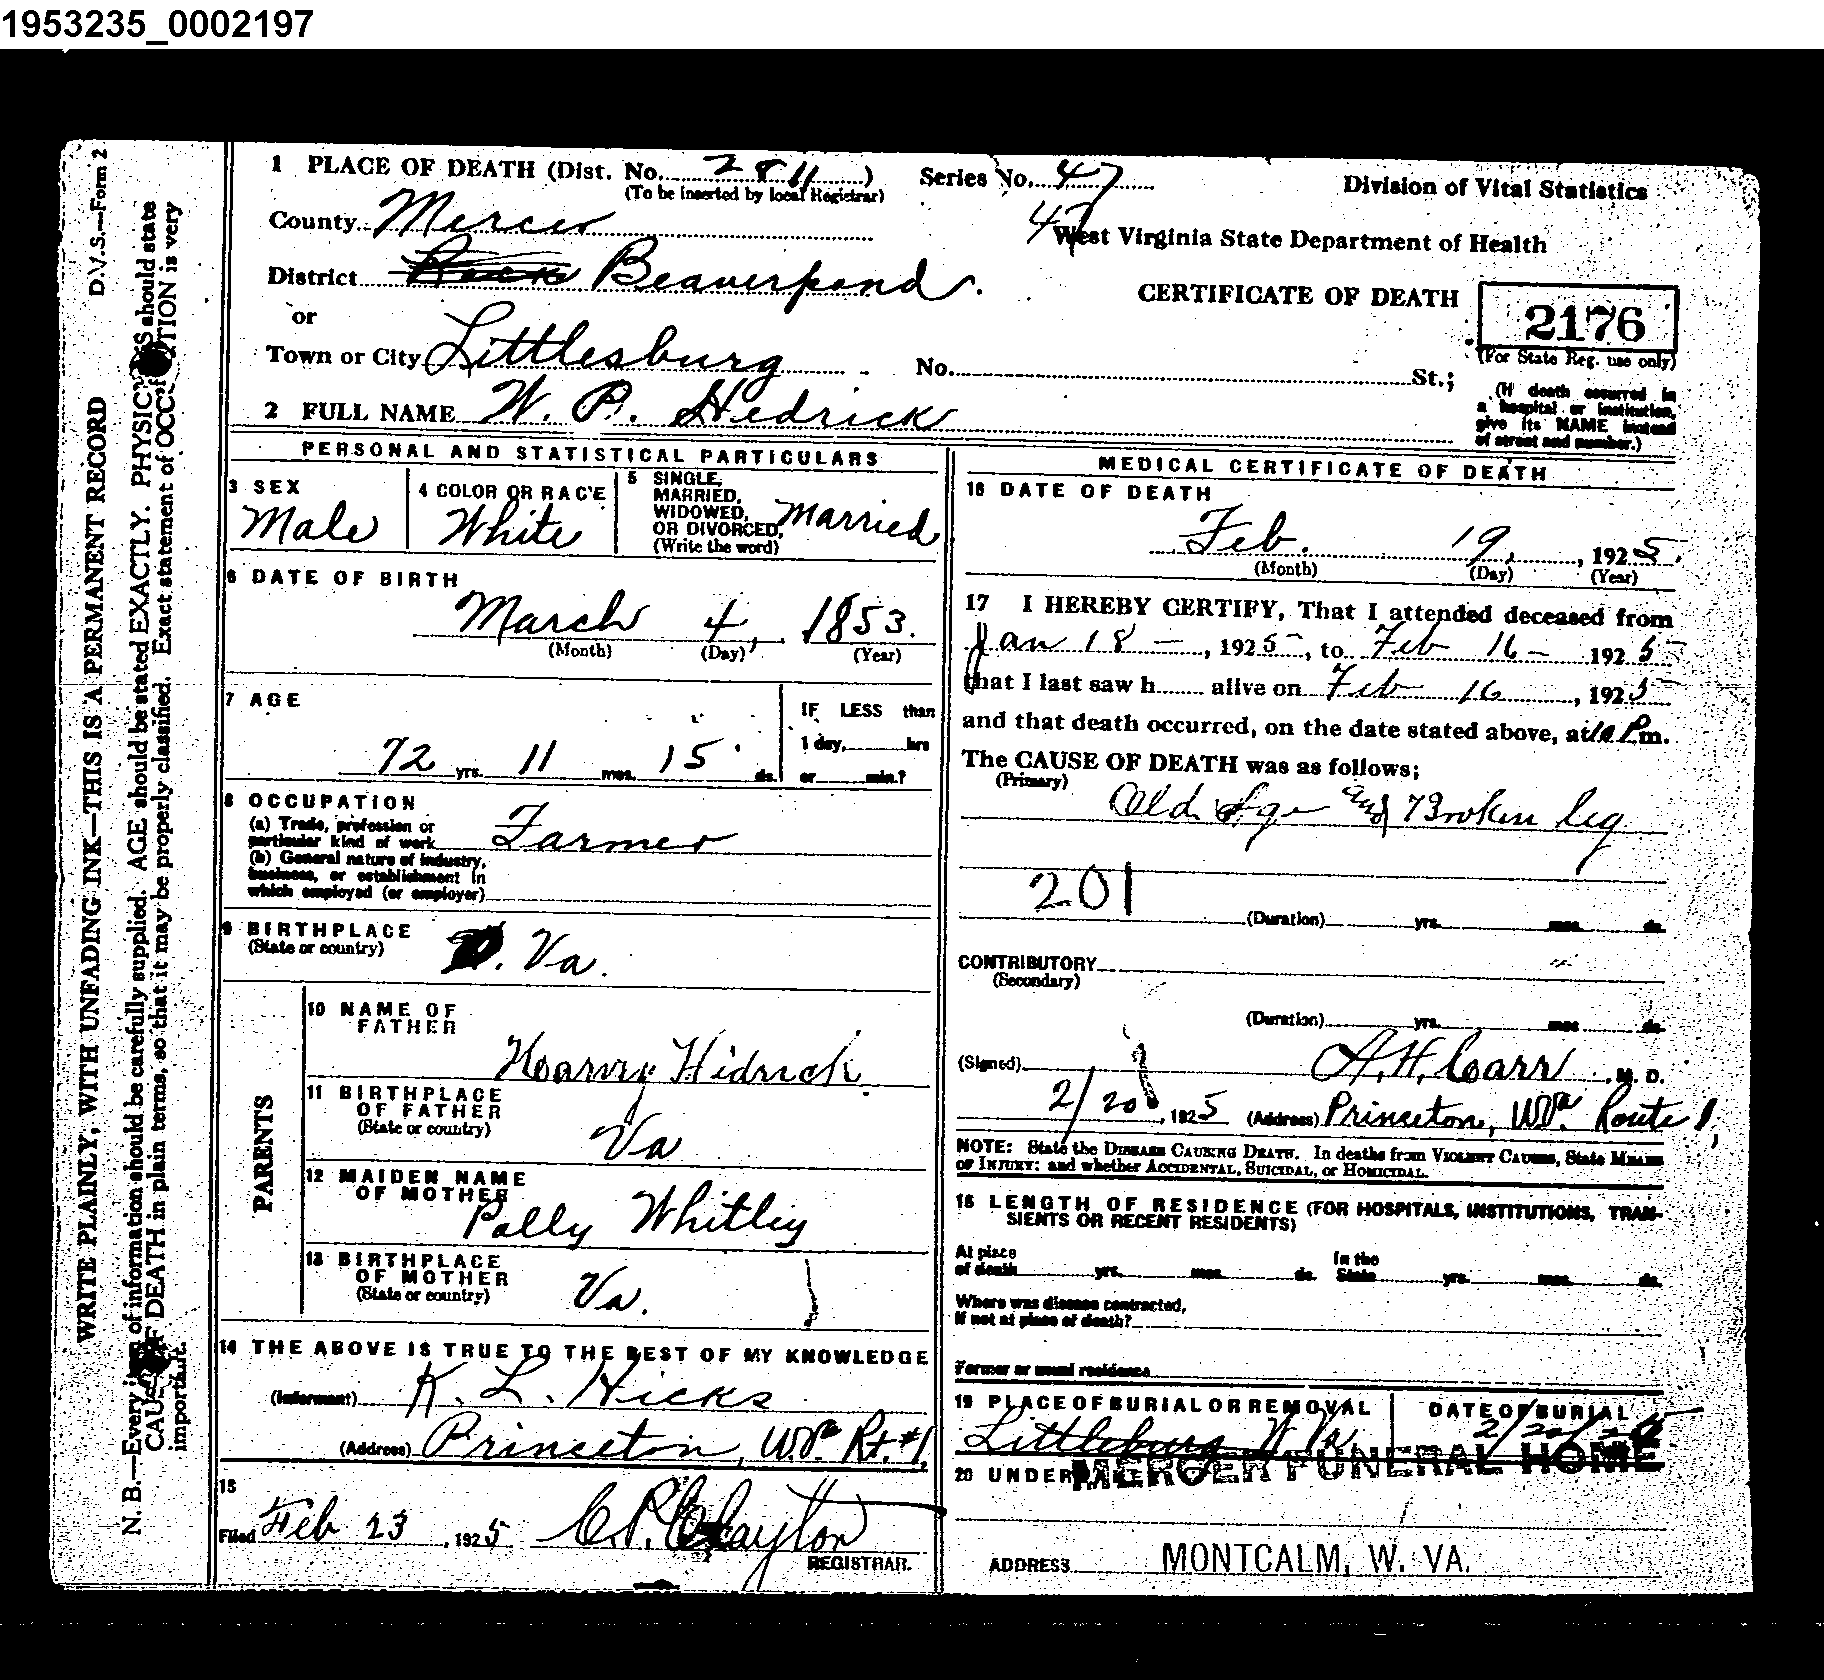 1953235_0002197
1 PLACE OF DEATH (Dist. No. 2811) Series No. 47 Division of Vital Statistics
(To be inserted by local Registrar)
County Mercer 47 West Virginia State Department of Health
District Rock Beaverpond.
or
CERTIFICATE OF DEATH 2176
(For State Reg. use only)
Town or City Littlesburg No. St.;
(If death occurred in a hospital or institution, give its NAME instead of street and number.)
2 FULL NAME W. P. Hedrick
PERSONAL AND STATISTICAL PARTICULARS
3 SEX
Male
4 COLOR OR RACE
White
5 SINGLE, MARRIED, WIDOWED, OR DIVORCED, (Write the word)
Married
6 DATE OF BIRTH
March 4, 1853.
(Month) (Day) (Year)
7 AGE
72 yrs. 11 mos. 15 ds.
IF LESS than
1 day, hrs
or min.?
8 OCCUPATION
(a) Trade, profession or
particular kind of work Farmer
(b) General nature of industry,
business, or establishment in
which employed (or employer)
9 BIRTHPLACE
(State or country) Va.
PARENTS
10 NAME OF
FATHER
Hoarvy Hidrick
11 BIRTHPLACE
OF FATHER
(State or country) Va
12 MAIDEN NAME
OF MOTHER
Polly Whitley
13 BIRTHPLACE
OF MOTHER
(State or country) Va.
14 THE ABOVE IS TRUE TO THE BEST OF MY KNOWLEDGE
(Informant) K. L. Hicks
(Address) Princeton, W.Va Rt. #1.
15
Filed Feb 23, 1925 C.P. Clayton
REGISTRAR.
MEDICAL CERTIFICATE OF DEATH
16 DATE OF DEATH
Feb. 19, , 1925.
(Month) (Day) (Year)
17 I HEREBY CERTIFY, That I attended deceased from
Jan 18 - , 1925, to Feb 16 - 1925
that I last saw h alive on Feb 16 , 1925
and that death occurred, on the date stated above, at 10 P.m.
The CAUSE OF DEATH was as follows;
(Primary)
Old Age and Broken leg
201
(Duration) yrs. mos. ds.
CONTRIBUTORY
(Secondary)
(Duration) yrs. mos. ds.
(Signed) A. H. Carr M. D.
2/20, 1925 (Address) Princeton, W.Va. Route 1,
NOTE: State the DISEASE CAUSING DEATH. In deaths from VIOLENT CAUSES, State MEANS
OF INJURY; and whether ACCIDENTAL, SUICIDAL, or HOMICIDAL.
18 LENGTH OF RESIDENCE (FOR HOSPITALS, INSTITUTIONS, TRAN-
SIENTS OR RECENT RESIDENTS)
At place
of death yrs. mos. ds.
In the
State yrs. mos. ds.
Where was disease contracted,
if not at place of death?
Former or usual residence
19 PLACE OF BURIAL OR REMOVAL
Littleburg W Va
DATE OF BURIAL
2/20/25
20 UNDERTAKER MERCER FUNERAL HOME
ADDRESS MONTCALM, W. VA.
D.V.S.—Form 2
WRITE PLAINLY, WITH UNFADING INK—THIS IS A PERMANENT RECORD
N. B.—Every item of information should be carefully supplied. AGE should be stated EXACTLY. PHYSICIANS should state
CAUSE OF DEATH in plain terms, so that it may be properly classified. Exact statement of OCCUPATION is very
important.